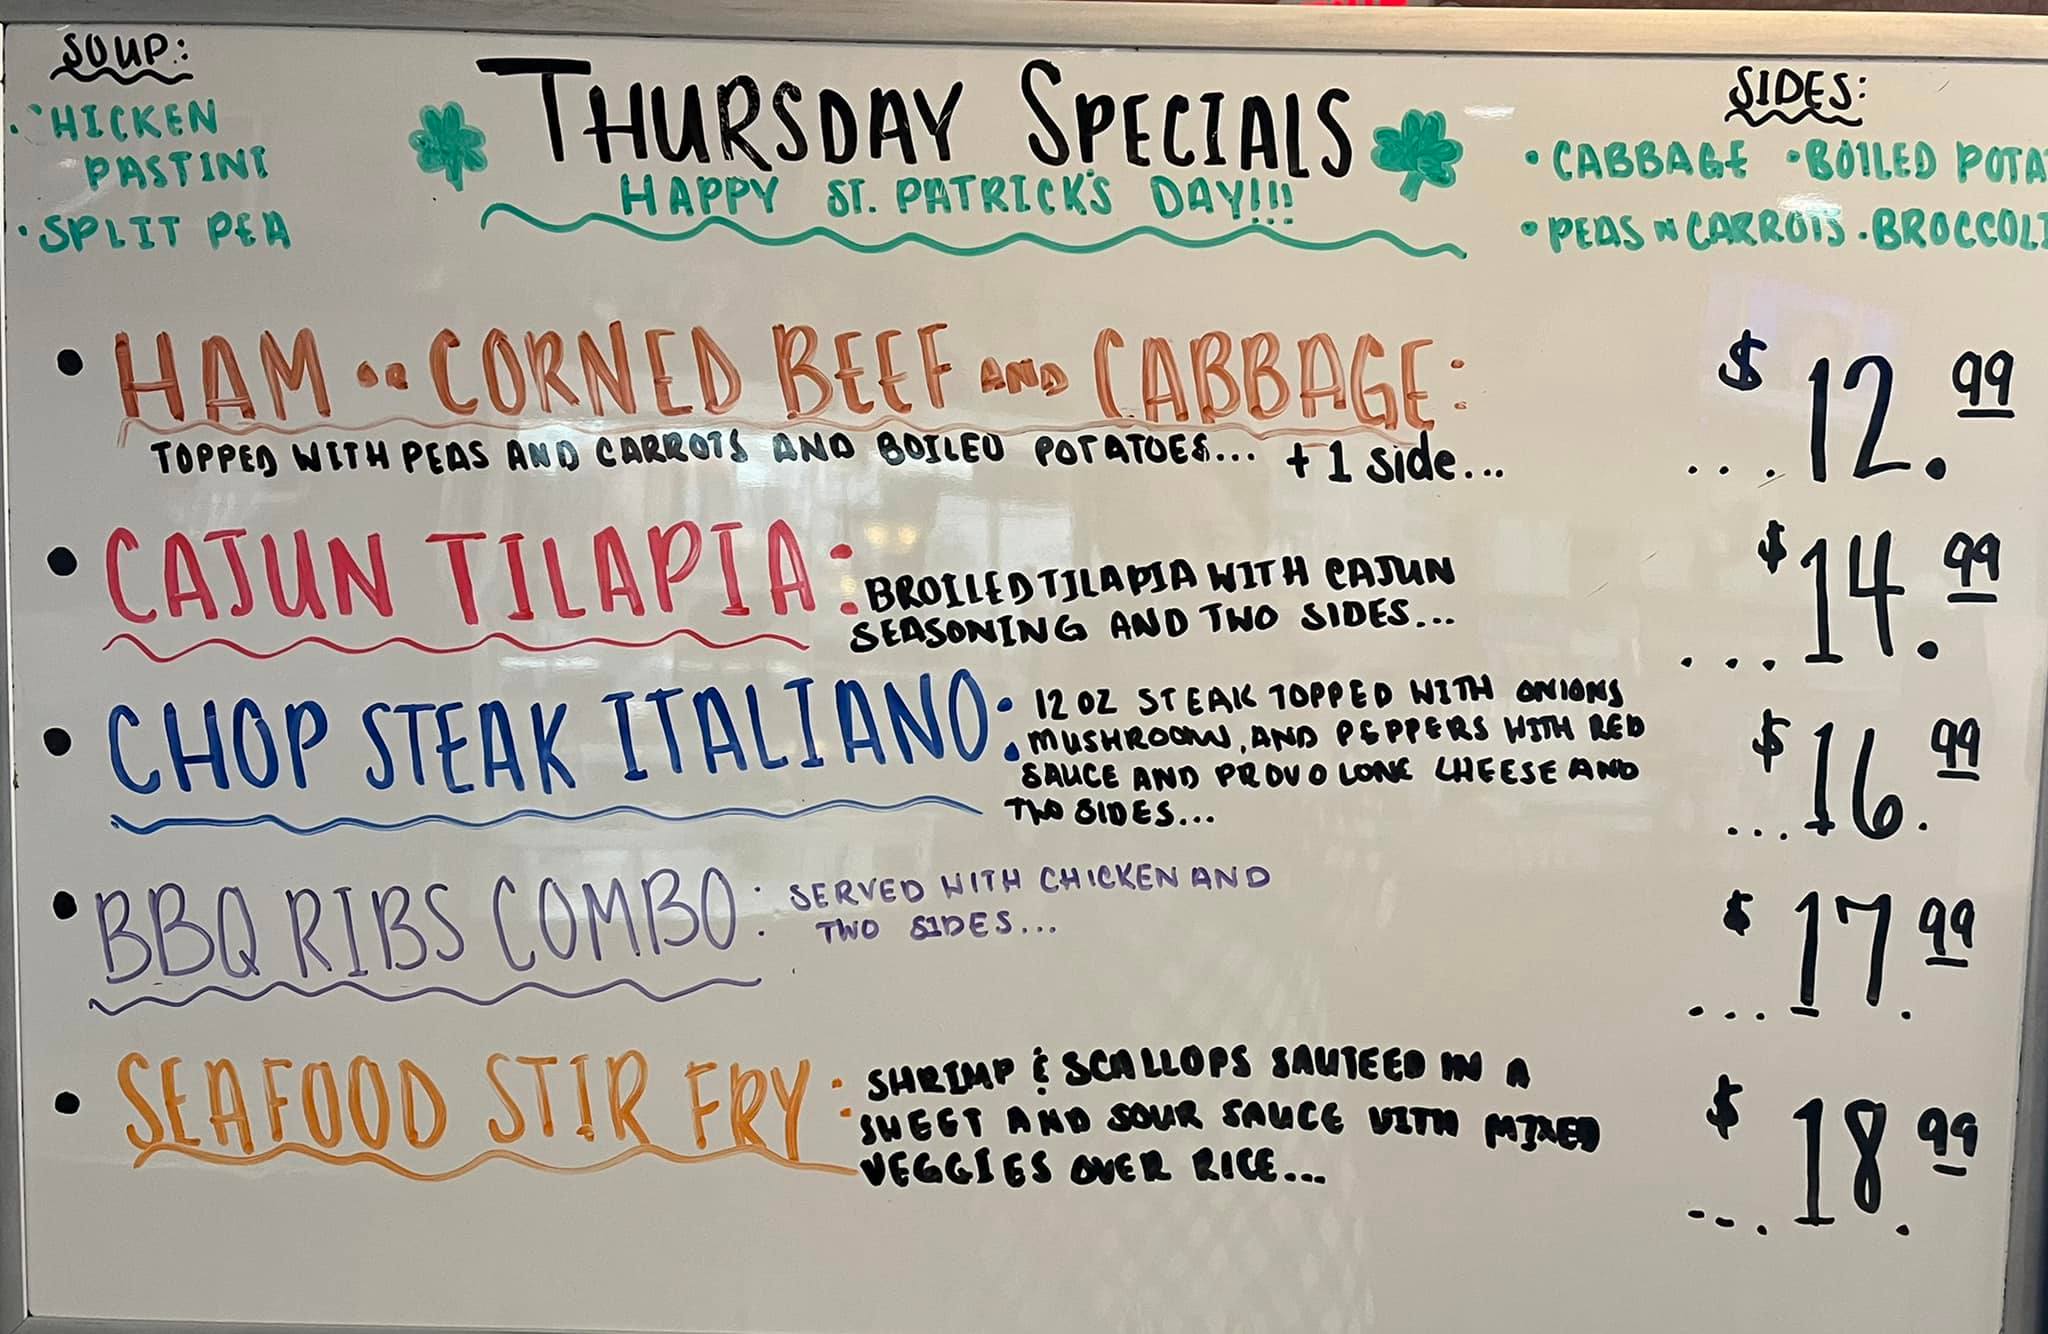 SOUP:
·CHICKEN
PASTINI
·SPLIT PEA
THURSDAY SPECIALS
HAPPY ST. PATRICK'S DAY!!!
SIDES:
·CABBAGE ·BOILED POTA
·PEAS N CARROTS ·BROCCOLI
• HAM OR CORNED BEEF AND CABBAGE: $12.99
TOPPED WITH PEAS AND CARROTS AND BOILED POTATOES... +1 side... ...
• CAJUN TILAPIA: BROILED TILAPIA WITH CAJUN $14.99
SEASONING AND TWO SIDES... ...
• CHOP STEAK ITALIANO: 12 OZ STEAK TOPPED WITH ONIONS $16.99
MUSHROOM, AND PEPPERS WITH RED
SAUCE AND PROVOLONE CHEESE AND
TWO SIDES... ...
• BBQ RIBS COMBO: SERVED WITH CHICKEN AND $17.99
TWO SIDES... ...
• SEAFOOD STIR FRY: SHRIMP & SCALLOPS SAUTEED IN A $18.99
SWEET AND SOUR SAUCE WITH MIXED
VEGGIES OVER RICE... ...